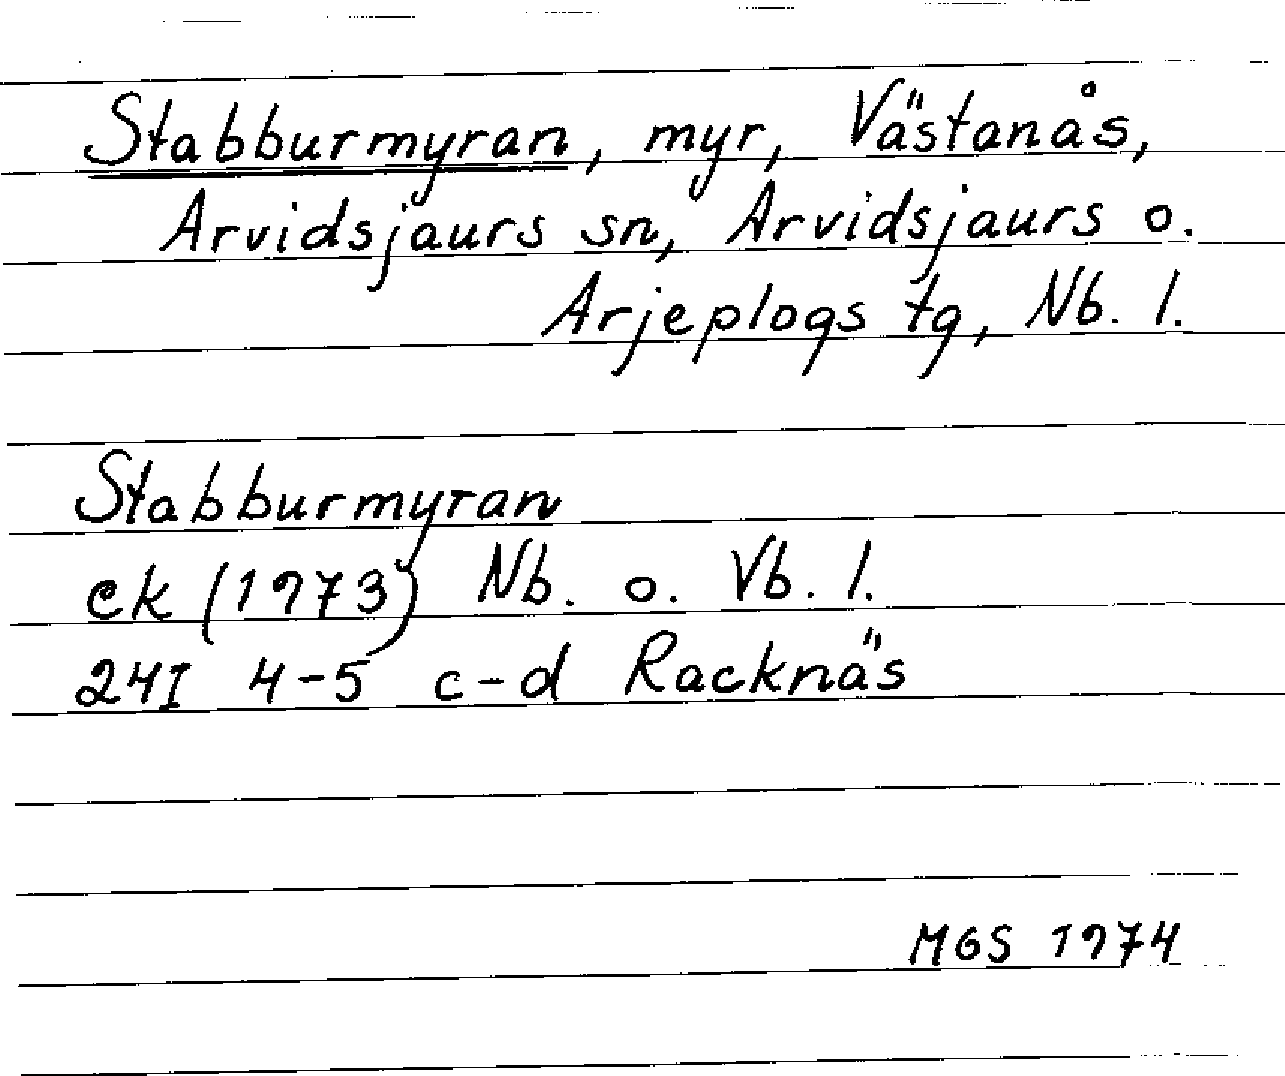 Stabburmyran, myr, Västanås,
Arvidsjaurs sn, Arvidsjaurs o.
Arjeplogs tg, Nb. l.
Stabburmyran
ek (1973) Nb. o. Vb. l.
24I 4-5 c-d Racknäs
MGS 1974